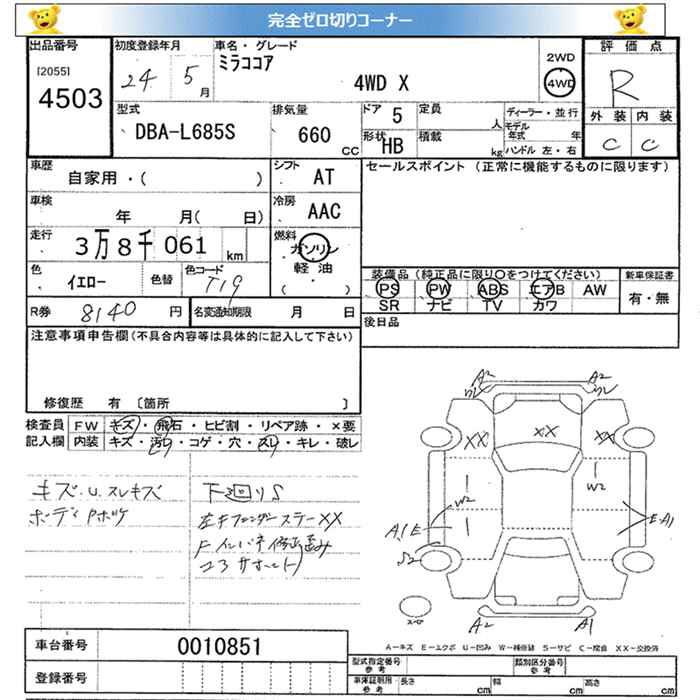 完全ゼロ切りコーナー
出品番号
[2055]
4503
初度登録年月
24 5 月
車名・グレード
ミラココア
4WD X
2WD
4WD
評価点
R
外装 内装
C C
型式
DBA-L685S
排気量
660 cc
ドア 5
形状 HB
定員 人
積載 kg
ディーラー・並行
モデル年式 年
ハンドル 左・右
車歴
自家用・( )
シフト
AT
セールスポイント (正常に機能するものに限ります)
車検
年 月( 日)
冷房
AAC
走行
3万8千061 km
燃料
ガソリン
軽油
( )
色
イエロー
色替
色コード
T19
装備品 (純正品に限り○をつけてください)
PS PW ABS エアB AW
SR ナビ TV カワ
新車保証書
有・無
R券 8140 円
名変通知期限 月 日
後日品
注意事項申告欄 (不具合内容等は具体的に記入して下さい)
修復歴 有 〔箇所 〕
検査員記入欄
FW キズ・飛石・ヒビ割・リペア跡・×要
内装 キズ・汚れ・コゲ・穴・スレ・キレ・破レ
キズ・U.スレキズ
ボディPボケ
下廻りS
左右フェンダーステーXX
Fインパネ修正歪み
コアサポート
A2 A2
XX XX XX
W2 W2
A1E
S2
E.A1
A2 A1
スペア
A－キズ E－エクボ U－凹み W－補修跡 S－サビ C－腐食 XX－交換済
車台番号
0010851
登録番号
型式指定番号 参考
類別区分番号 参考
車庫証明用 参考
長さ cm
幅 cm
高さ cm